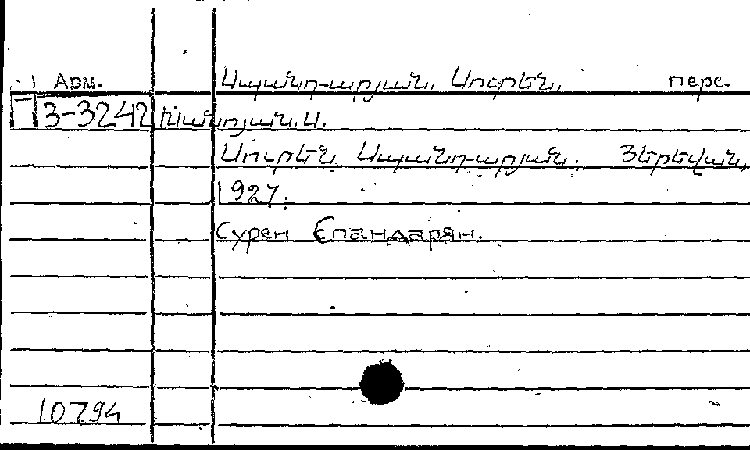 Арм. Սպանդարյան, Սուրեն. перс.
П 3-3242 Խանոյան.Ս.
Սուրեն Սպանդարյան. Յերեվան,
1927.
Сурен Спандарян.
10794